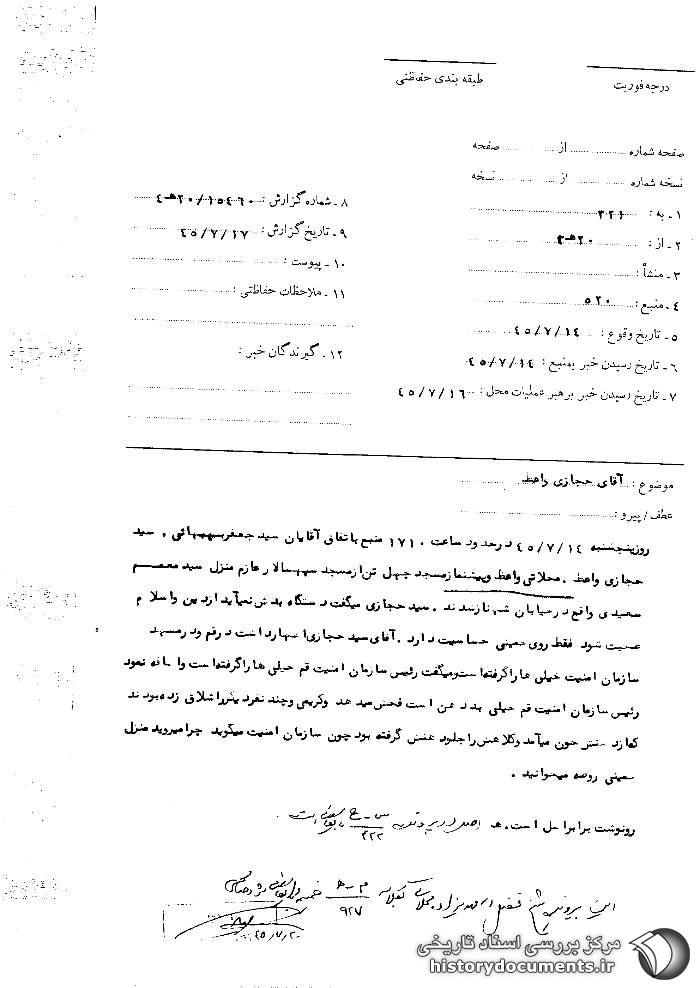 درجه فوریت
طبقه بندی حفاظتی
صفحه شماره از صفحه
نسخه شماره از نسخه
۱ ـ به : ۳۲۱
۲ ـ از : ۲۰هـ۴
۳ ـ منشأ :
۴ ـ منبع : ۵۲۰
۵ ـ تاریخ وقوع : ۴۵/۷/۱۴
۶ ـ تاریخ رسیدن خبر بمنبع : ۴۵/۷/۱۴
۷ ـ تاریخ رسیدن خبر برهبر عملیات محل : ۴۵/۷/۱۶
۸ ـ شماره گزارش : ۲۰/۱۵۴۶۰هـ۴
۹ ـ تاریخ گزارش : ۴۵/۷/۱۷
۱۰ ـ پیوست :
۱۱ ـ ملاحظات حفاظتی :
۱۲ ـ گیرندگان خبر :
موضوع : آقای حجازی واعظ
عطف/پیرو :
روزپنجشنبه ۴۵/۷/۱۴ درحدود ساعت ۱۷۱۰ منبع باتفاق آقایان سید جعفربهبهانی ، سید
حجازی واعظ . محلاتی واعظ وپیشنمازمسجد چهل تن ازمسجد سپهسالار عازم منزل سید معصم
سعیدی واقع درخیابان شهنازشدند . سید حجازی میگفت دستگاه بدش نمیآید ازدین واسلام
صحبت شود فقط روی خمینی حساسیت دارد . آقای سید حجازی اظهارداشت درقم ودرمشهد
سازمان امنیت خیلی هاراگرفته‌است ومیگفت رئیس سازمان امنیت قم خیلی هاراگرفته‌است واضافه نمود
رئیس سازمان امنیت قم خیلی بد دهن است فحش میدهد وکریمی وچند نفردیگرراشلاق زده‌بودند
که‌از خون میآمد وکلاهش راجلو گرفته بود چون سازمان امنیت میگوید چرامیروید منزل
خمینی روضه میخوانید .
رونوشت برابراصل است . هـ اصل در پرونده س ـ ح است
۳۲۲
این پرونده شیخ فضل اله محلاتی م ـ هـ
۹۲۷
۴۵/۷/۲۰
مرکز بررسی اسناد تاریخی
historydocuments.ir